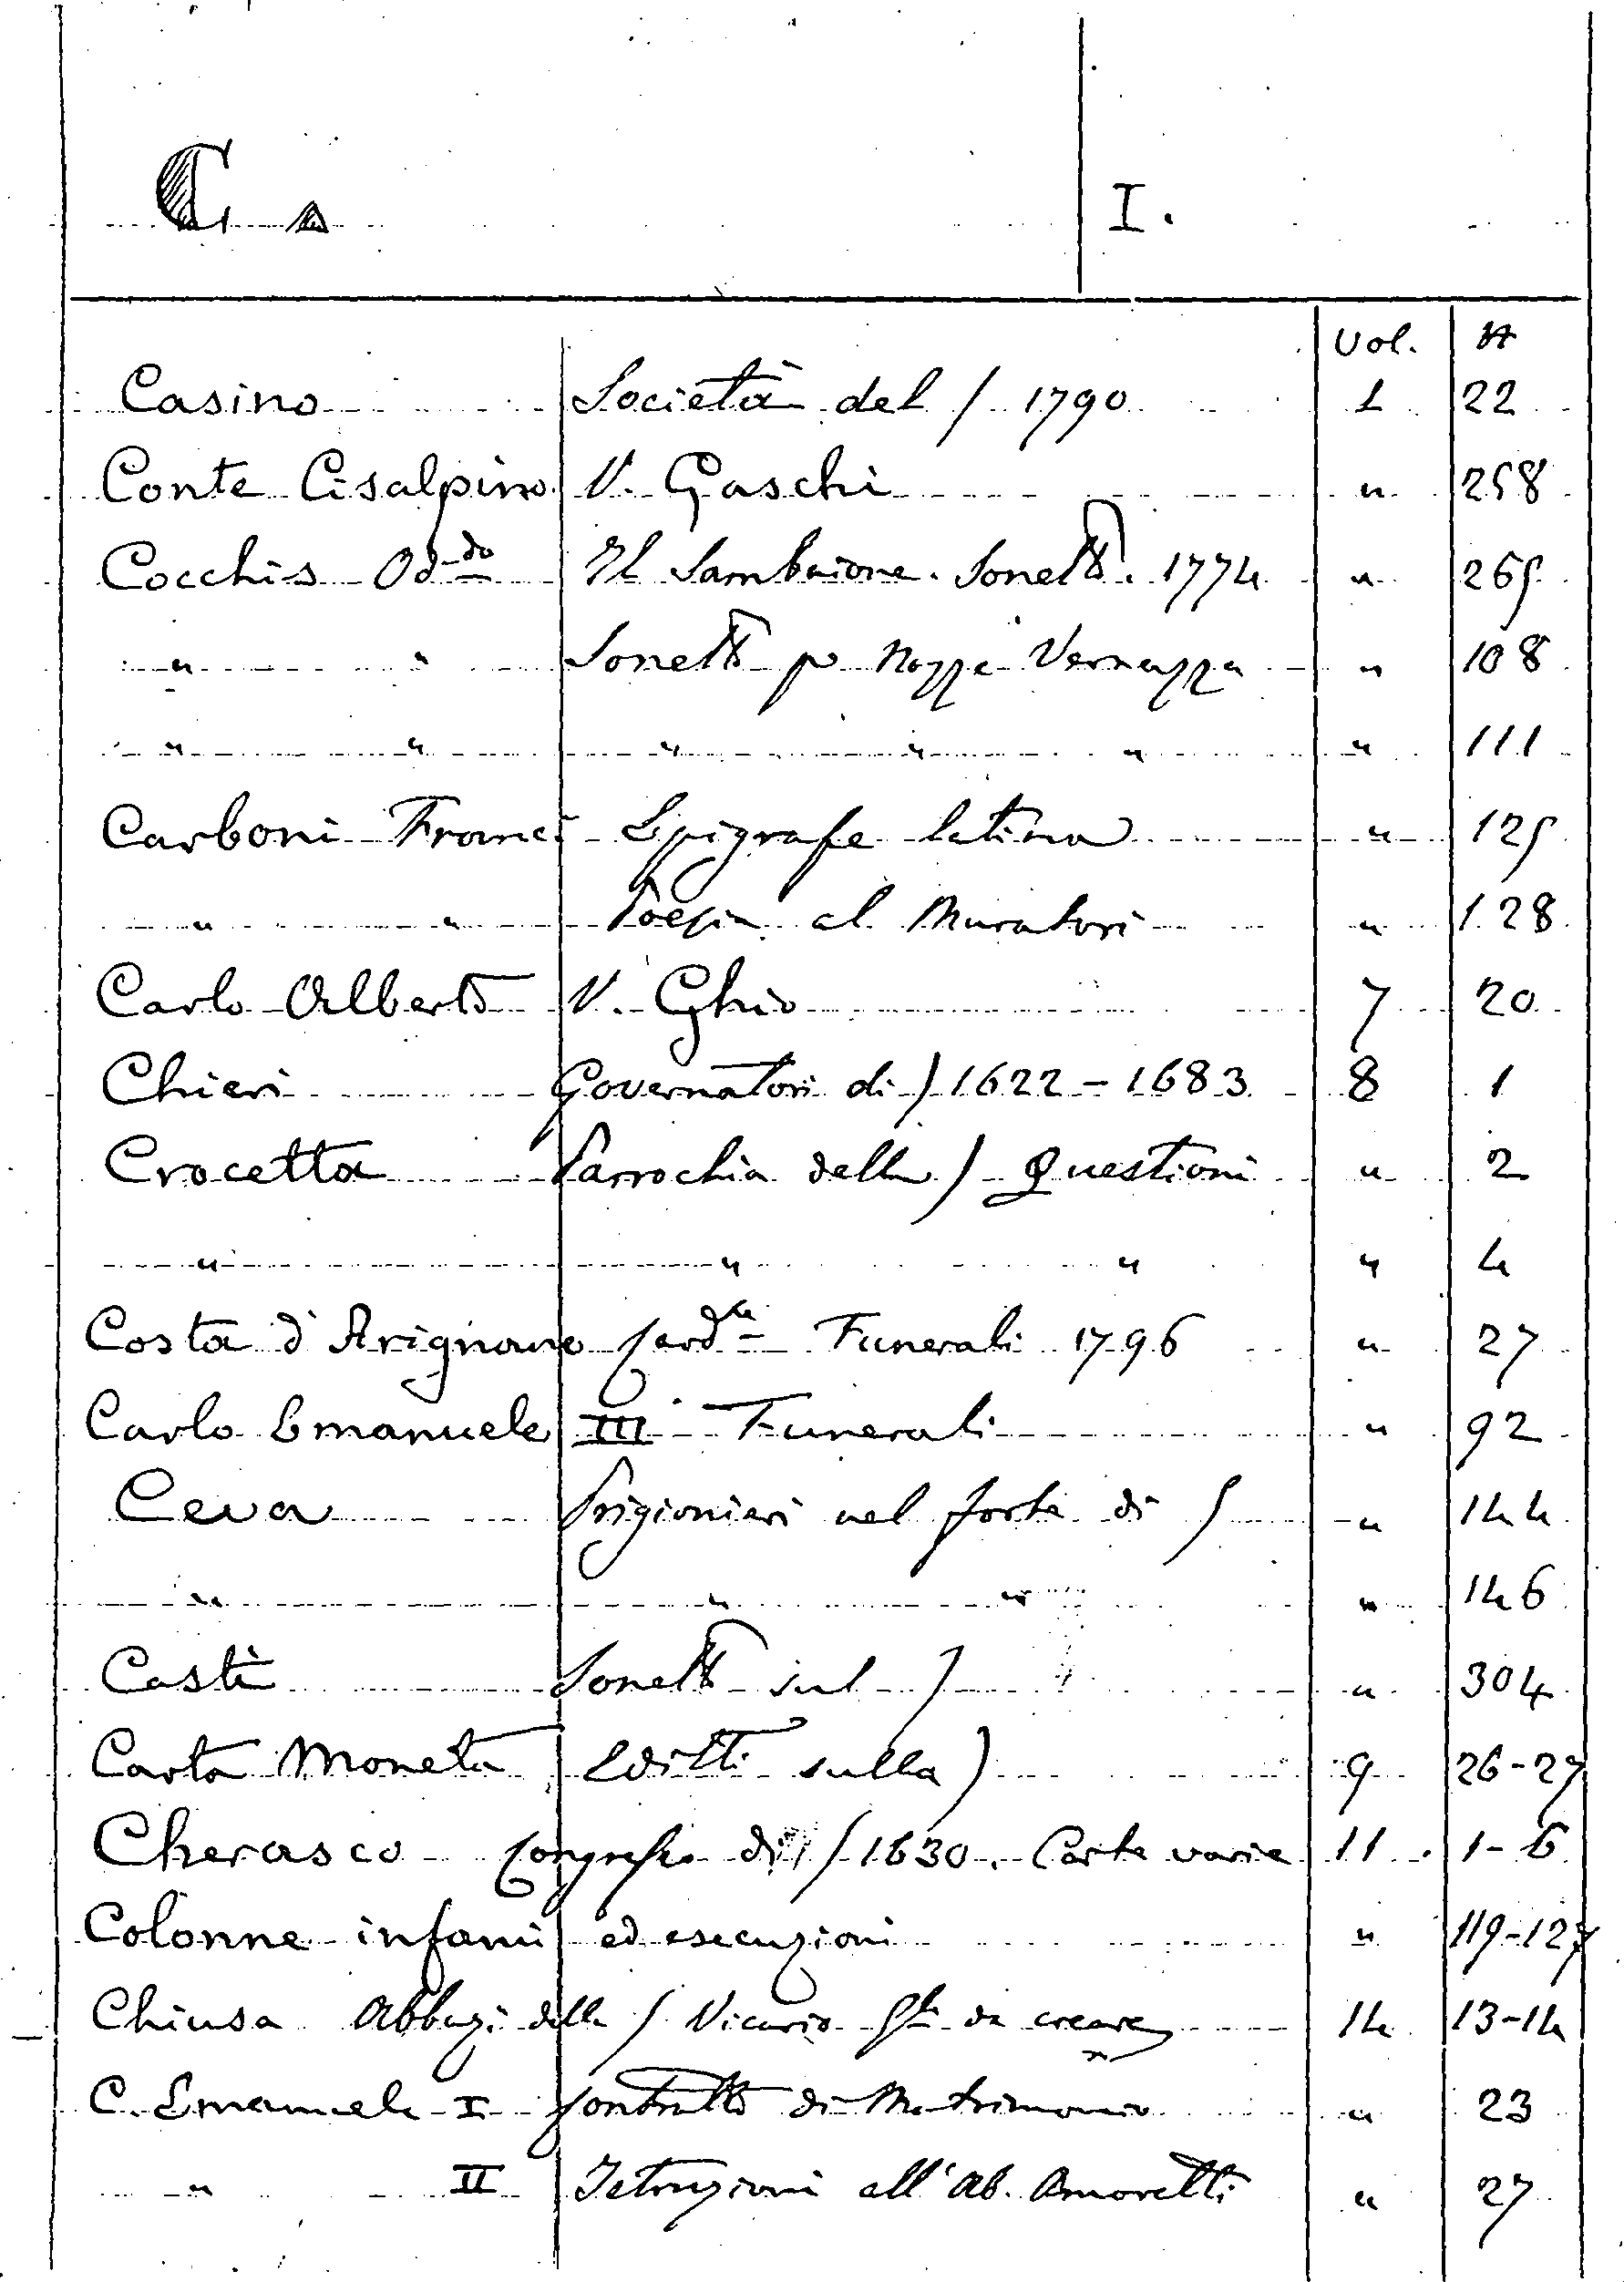 C A I.
Vol. N
Casino Società del / 1790 1 22
Conte Cisalpino V. Gaschi " 258
Cocchis Od.do Il Sambuione. Sonetto. 1774 " 265
" " Sonetto p nozze Vernazza " 108
" " " " " " 111
Carboni Franc. Epigrafe latina " 125
" " Poesia al Muratori " 128
Carlo Alberto V. Ghio 7 20
Chieri Governatori di ) 1622 - 1683 8 1
Crocetta Parrochia della ) Questioni " 2
" " " " 4
Costa d'Arignano Card.le Funerali 1796 " 27
Carlo Emanuele III Funerali " 92
Ceva Prigionieri nel forte di / " 144
" " " " 146
Casti Sonetto sul ) " 304
Carta Moneta Editti sulla ) 9 26-27
Cherasco Congresso di / 1630. Carte varie 11 . 1-6
Colonne infami ed esecuzioni " 119-127
Chiusa Abbazi. della / Vicario da creare 14 13-14
C. Emanuele I Contratto di Matrimonio " 23
" II Istruzioni all'Ab. Amoretti " 27